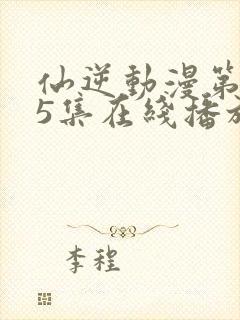 仙逆動漫第
5集在綫播放
李程